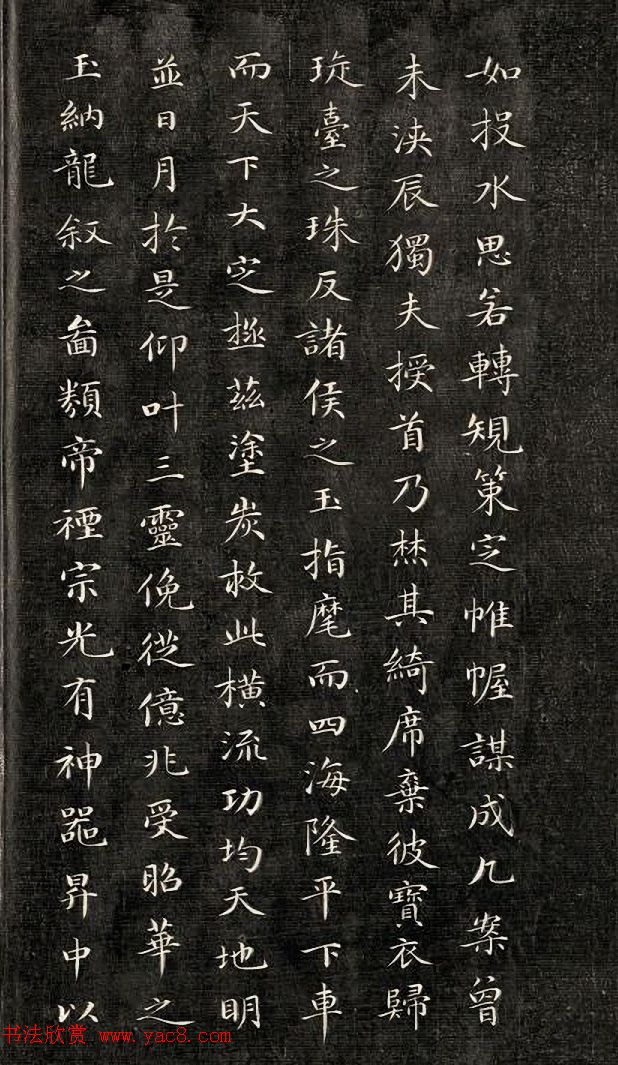 如投水思若轉規策定帷幄謀成几案曾
未浹辰獨夫授首乃焚其綺席棄彼寶衣歸
琁臺之珠反諸侯之玉指麾而四海隆平下車
而天下大定拯茲塗炭救此橫流功均天地明
並日月於是仰叶三靈俛從億兆受昭華之
玉納龍叙之啚類帝禋宗光有神器昇中以
书法欣赏 www.yac8.com